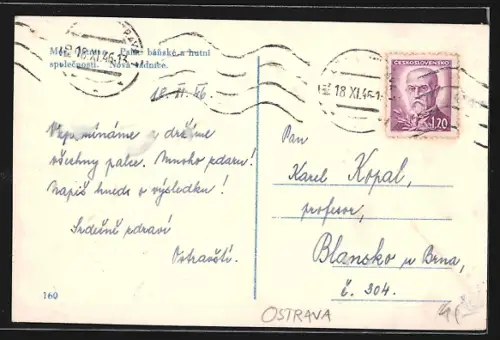 Palác báňské a hutní
společnosti. Nová radnice.
18 XI.46-13
18 XI.46-1
ČESKOSLOVENSKO
1.20
18. XI. 46.
Vzpomínáme a držíme
všechny palce. Mnoho zdaru!
Napiš hned o výsledku!
Srdečně zdraví
Ostravští.
160
Pan
Karel Kopal,
profesor,
Blansko u Brna,
č. 304.
OSTRAVA